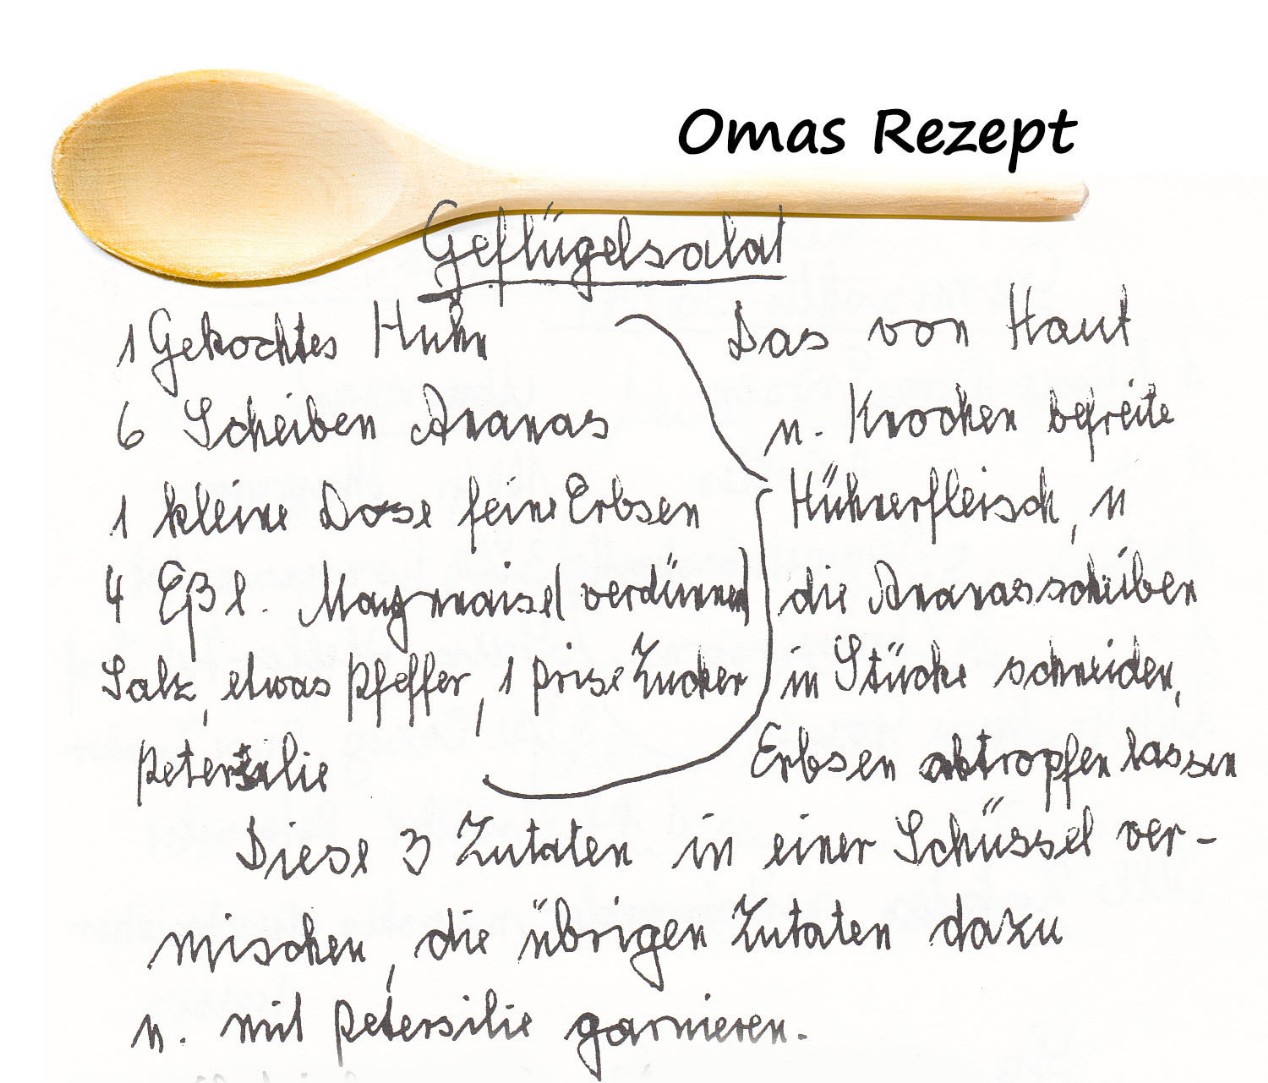 Omas Rezept
Geflügelsalat
1 Gekochtes Huhn
6 Scheiben Ananas
1 kleine Dose feine Erbsen
4 Eßl. Mayonnaise (verdünnen)
Salz, etwas Pfeffer, 1 Prise Zucker
Petersilie
Das von Haut
u. Knochen befreite
Hühnerfleisch, u
die Ananasscheiben
in Stücke schneiden,
Erbsen abtropfen lassen
Diese 3 Zutaten in einer Schüssel ver-
mischen, die übrigen Zutaten dazu
u. mit Petersilie garnieren.